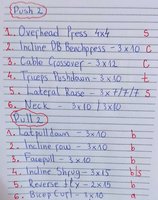 Push 2
1. Overhead Press 4x4 S
2. Incline DB Benchpress - 3x10 C
3. Cable Crossover - 3x12 C
4. Triceps Pushdown - 3x10 t
5. Lateral Raise - 3x7/7/7 S
6. Neck - 3x10 / 3x10
Pull 2
1. Latpulldown - 3x10 b
2. Incline row - 3x10 b
3. Facepull - 3x10 b
4. Incline Shrug - 3x15 b/s
5. Reverse fly - 2x15 b
6. Bicep Curl - 3x10 a